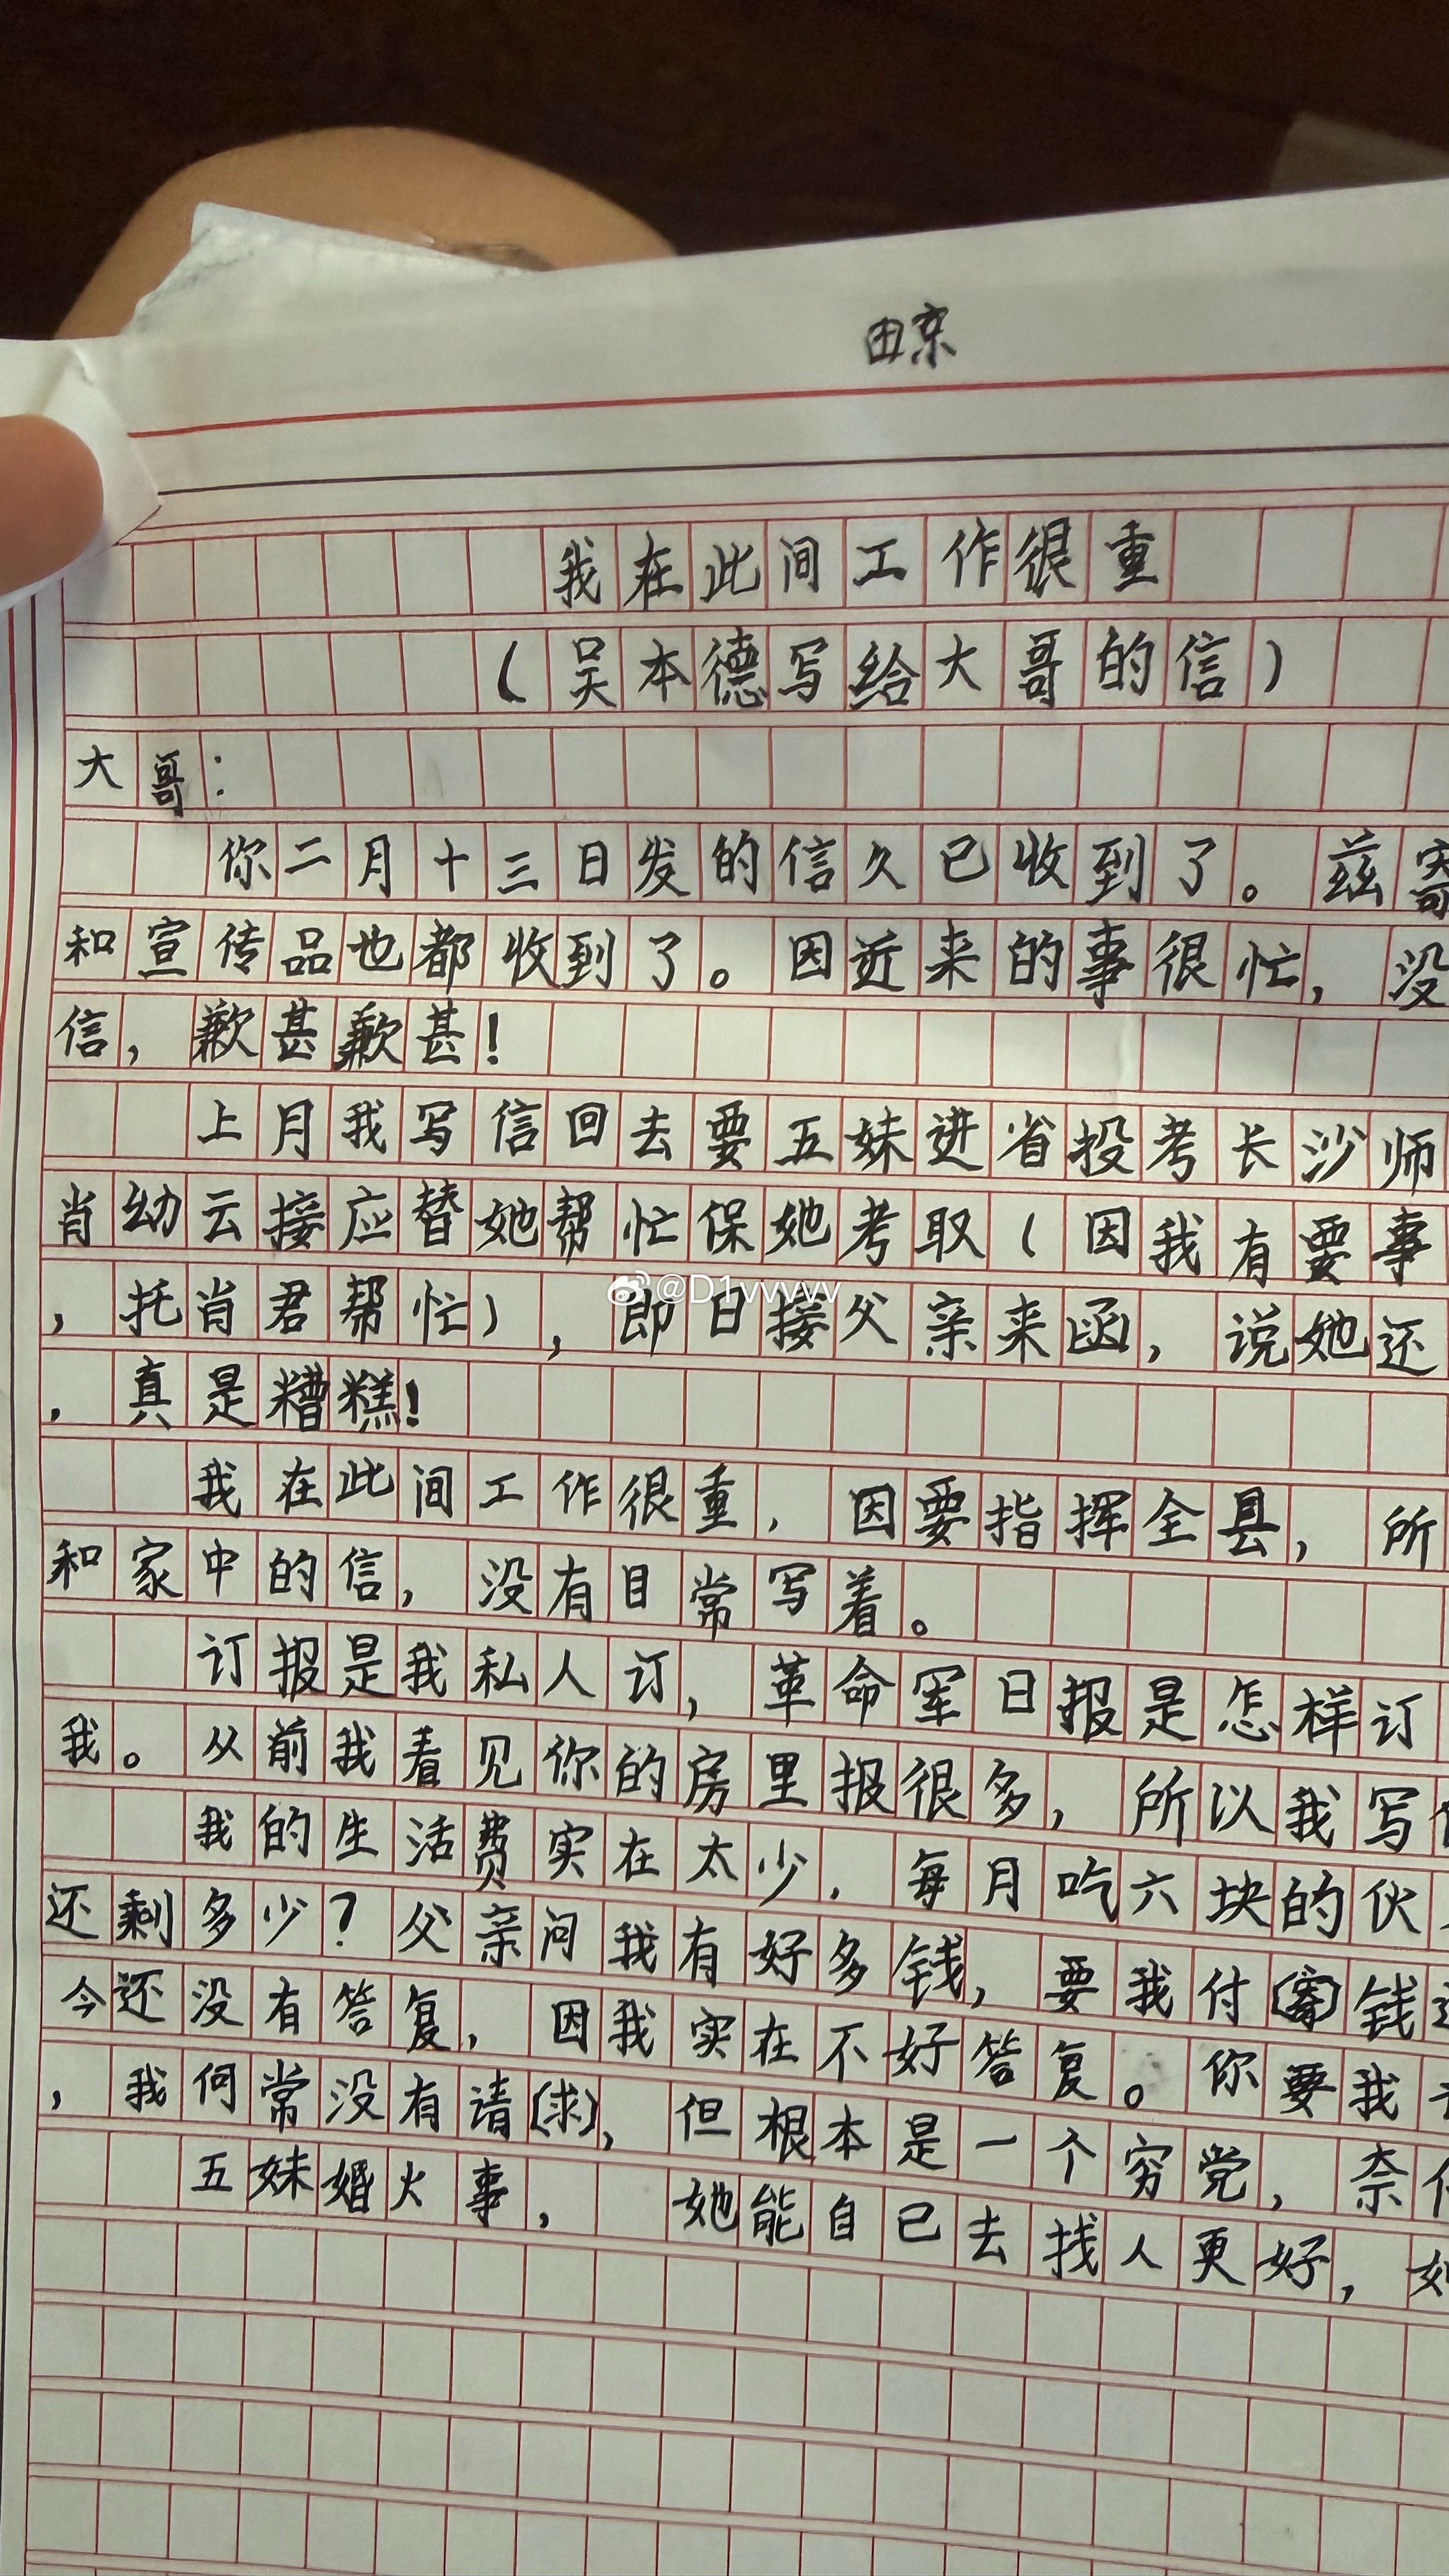 田京
我在此间工作很重
(吴本德写给大哥的信)
大哥:
你二月十三日发的信久已收到了。兹寄
和宣传品也都收到了。因近来的事很忙,没
信,歉甚歉甚!
上月我写信回去要五妹进省投考长沙师
肖幼云接应替她帮忙保她考取(因我有要事
,托肖君帮忙),即日接父亲来函,说她还
@D1vvvvv
,真是糟糕!
我在此间工作很重,因要指挥全县,所
和家中的信,没有日常写着。
订报是我私人订,革命军日报是怎样订
我。从前我看见你的房里报很多,所以我写
我的生活费实在太少,每月吃六块的伙
还剩多少?父亲问我有好多钱,要我付(寄)钱
今还没有答复,因我实在不好答复。你要我
,我何常没有请(求),但根本是一个穷党,奈
五妹婚火事,她能自已去找人更好,如